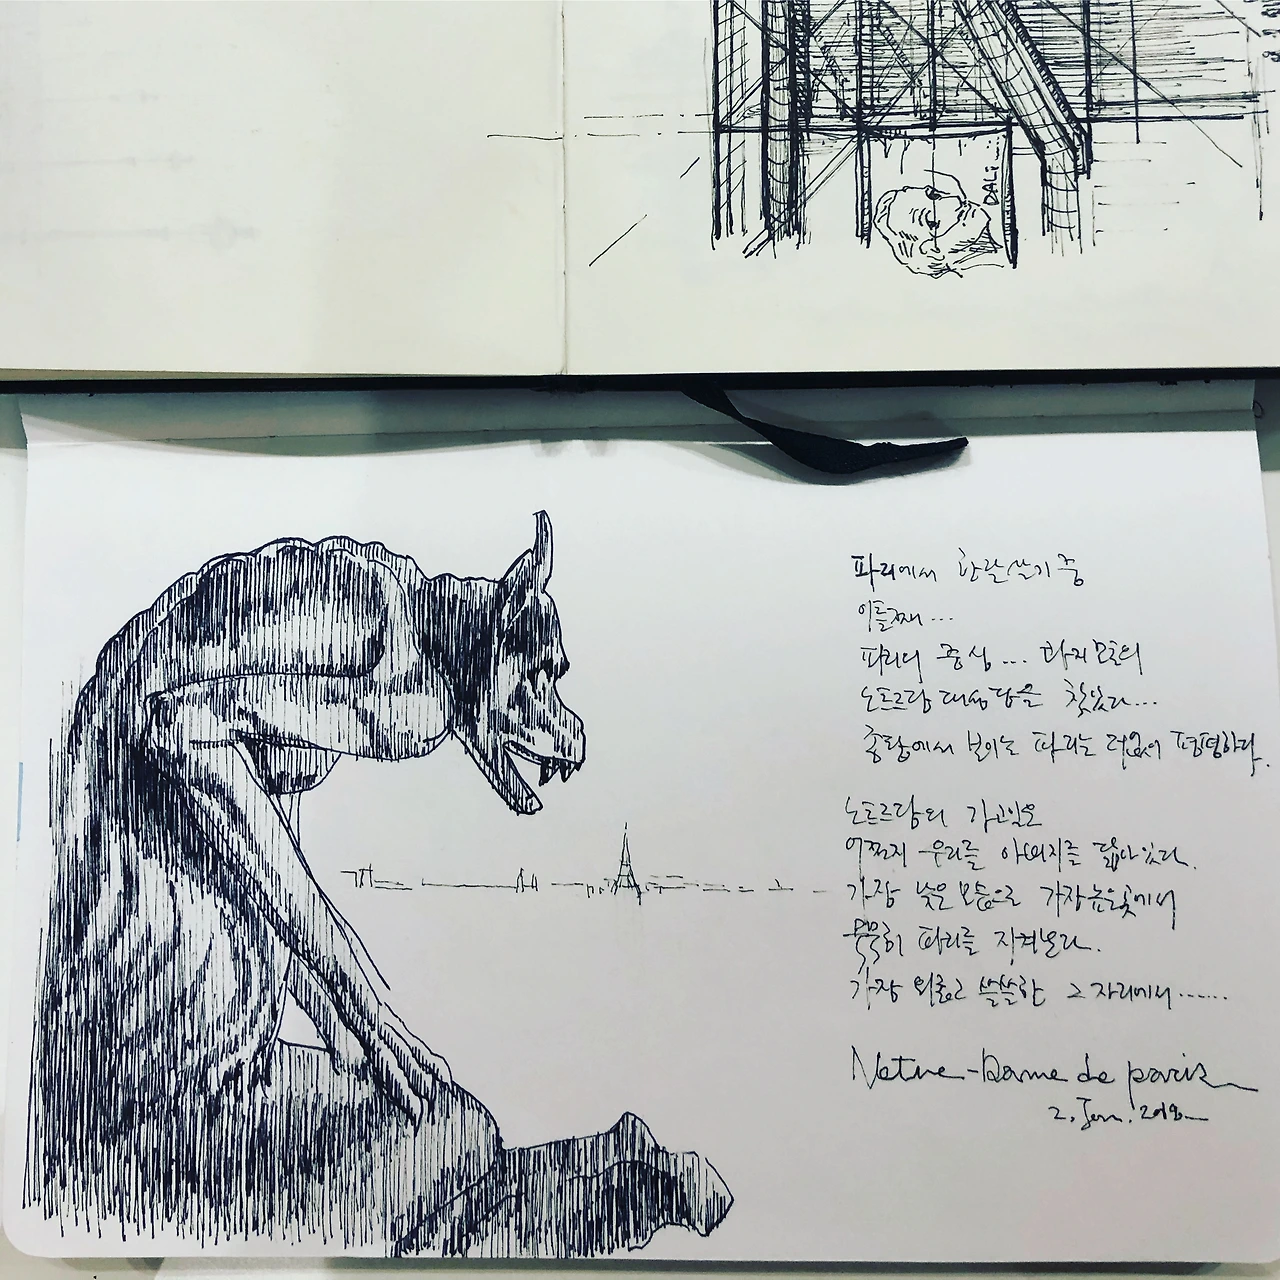 DALi...
파리에서 한달살기 중
이틀째...
파리의 중심... 콰지모도의
노트르담 대성당을 찾았다...
종탑에서 보이는 파리는 평평하다.
노트르담의 가고일은
어쩐지 우리들 아버지를 닮아있다.
가장 낮은 모습으로 가장 높은곳에서
묵묵히 파리를 지켜본다.
가장 외롭고 쓸쓸한 그 자리에서......
Notre-Dame de paris
2. Jan.